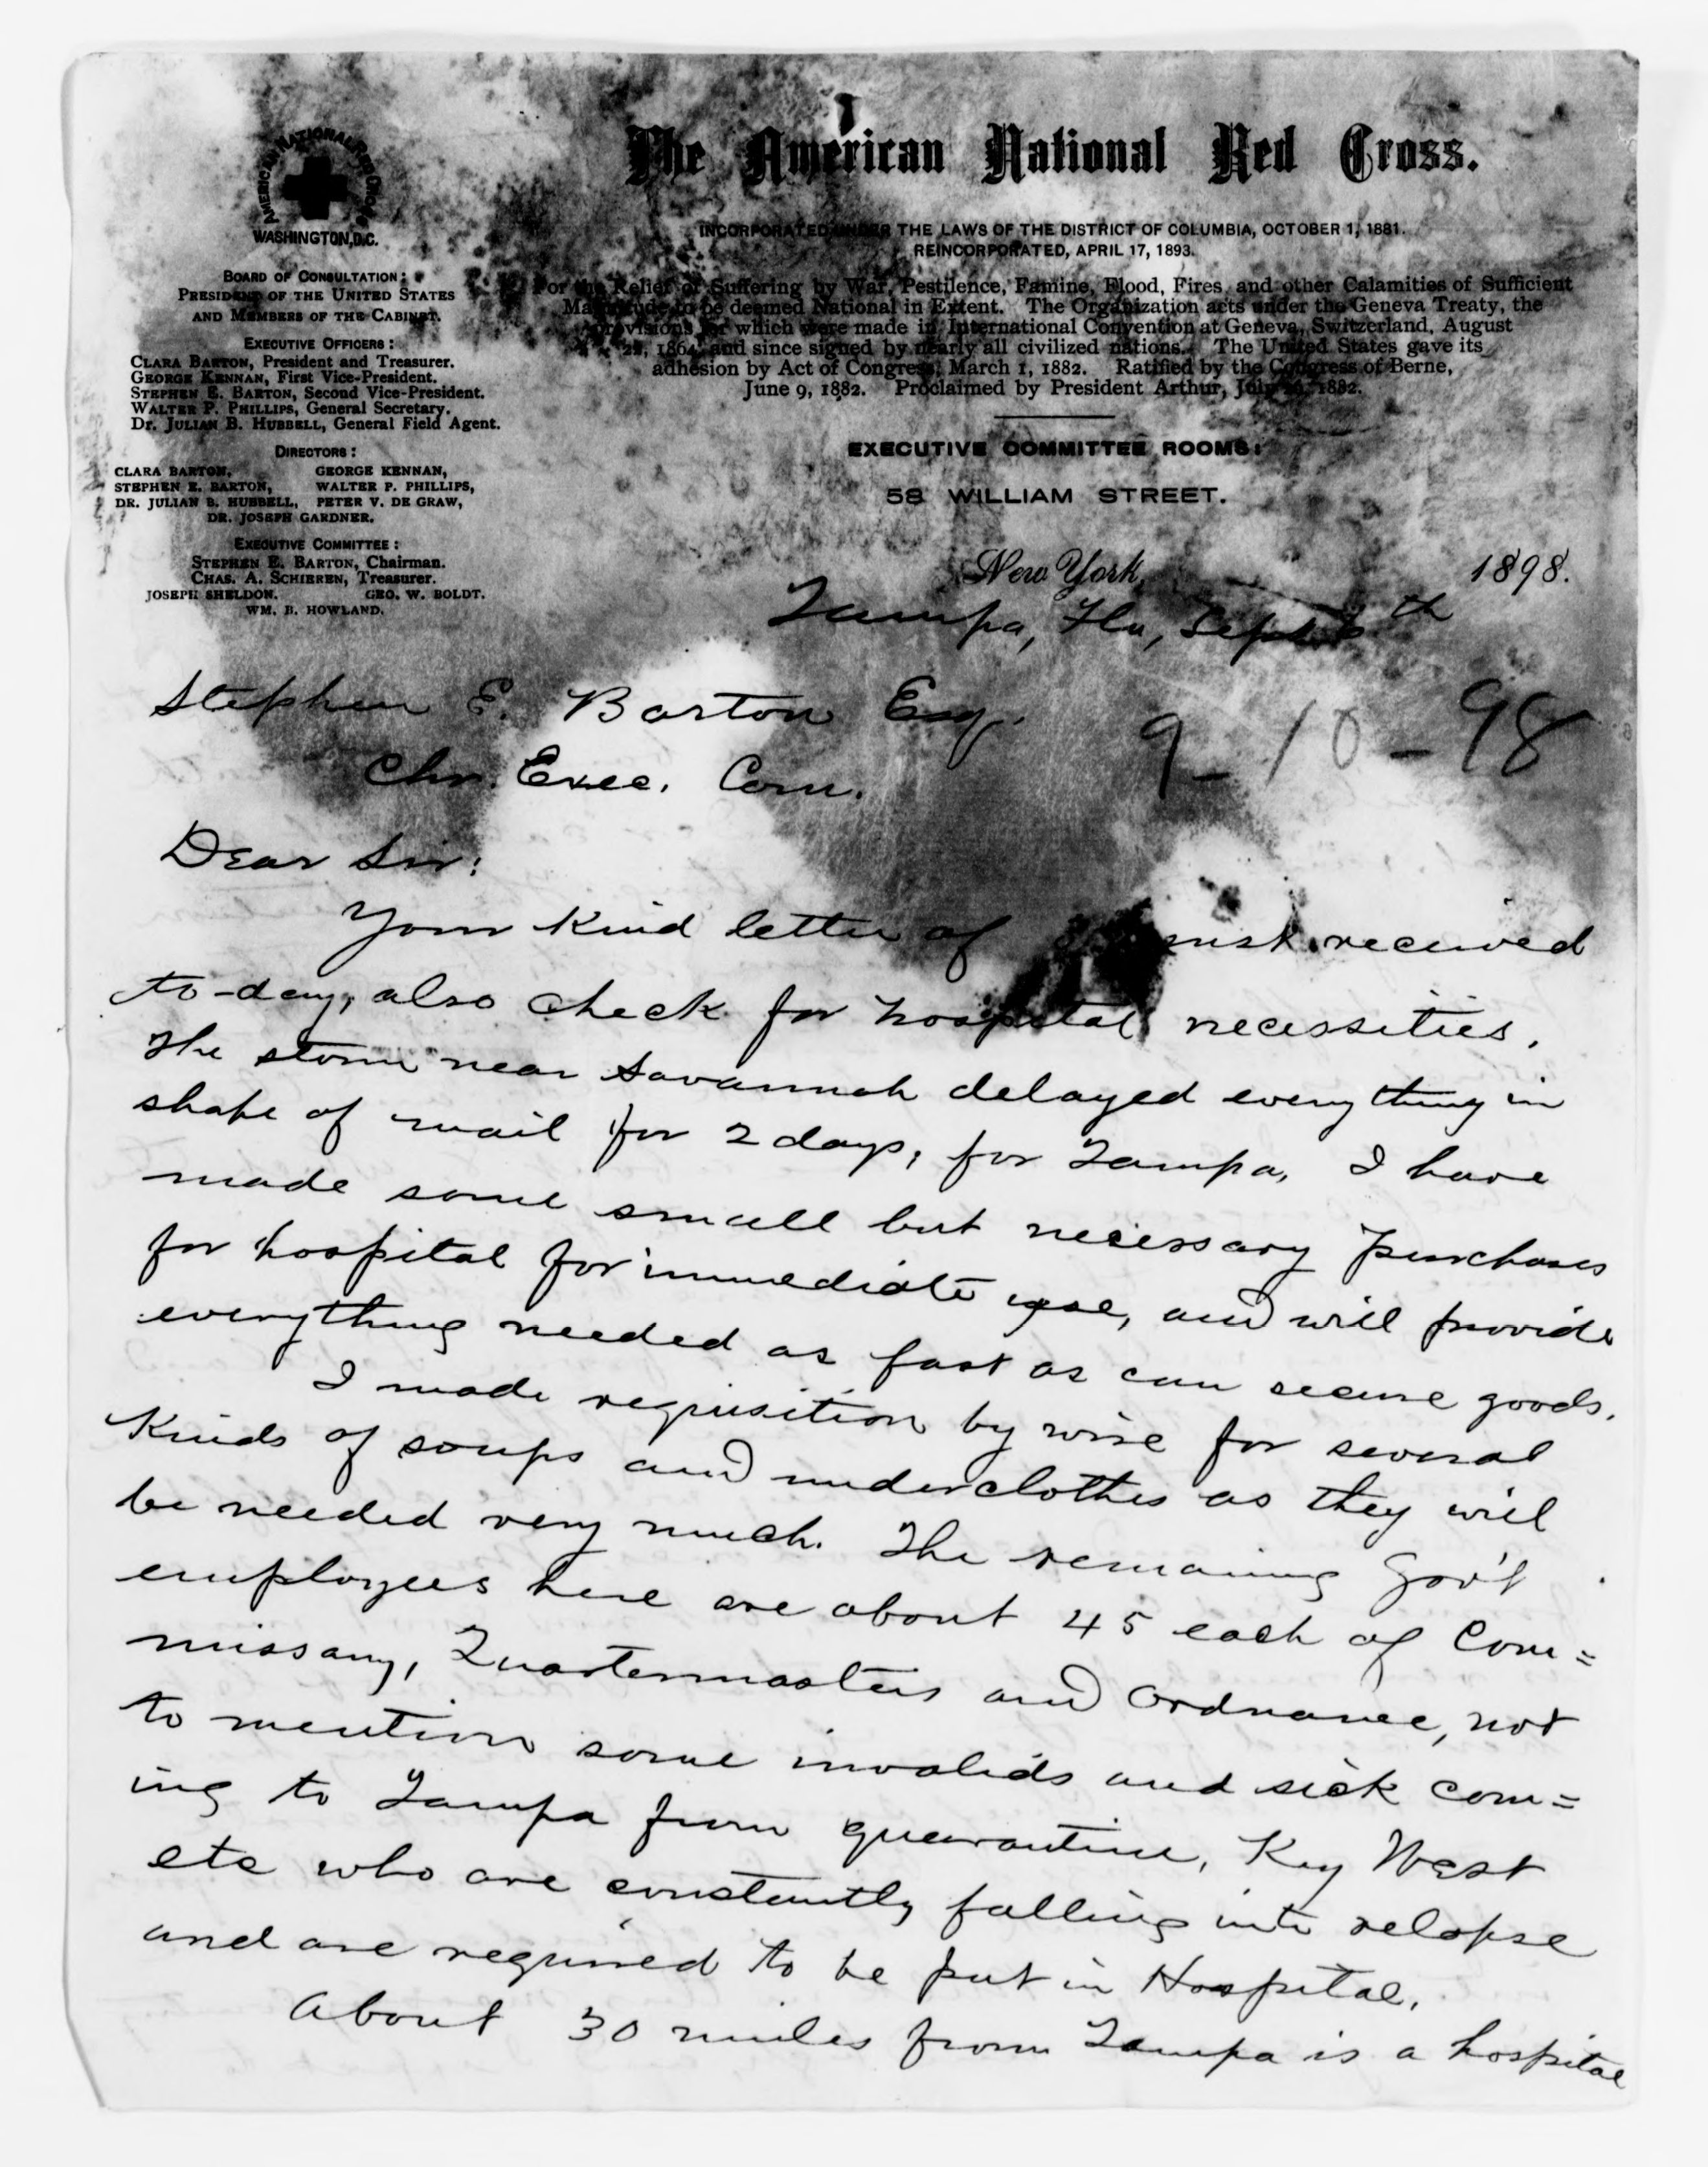 The American National Red Cross.
AMERICAN NATIONAL RED CROSS
WASHINGTON, D.C.
INCORPORATED UNDER THE LAWS OF THE DISTRICT OF COLUMBIA, OCTOBER 1, 1881.
REINCORPORATED, APRIL 17, 1893.
For the Relief of Suffering by War, Pestilence, Famine, Flood, Fires, and other Calamities of Sufficient
Magnitude to be deemed National in Extent. The Organization acts under the Geneva Treaty, the
provisions for which were made in International Convention at Geneva, Switzerland, August
22, 1864, and since signed by nearly all civilized nations. The United States gave its
adhesion by Act of Congress, March 1, 1882. Ratified by the Congress of Berne,
June 9, 1882. Proclaimed by President Arthur, July 26, 1882.
BOARD OF CONSULTATION:
PRESIDENT OF THE UNITED STATES
AND MEMBERS OF THE CABINET.
EXECUTIVE OFFICERS:
CLARA BARTON, President and Treasurer.
GEORGE KENNAN, First Vice-President.
STEPHEN E. BARTON, Second Vice-President.
WALTER P. PHILLIPS, General Secretary.
Dr. JULIAN B. HUBBELL, General Field Agent.
DIRECTORS:
CLARA BARTON, GEORGE KENNAN,
STEPHEN E. BARTON, WALTER P. PHILLIPS,
DR. JULIAN B. HUBBELL, PETER V. DE GRAW,
DR. JOSEPH GARDNER.
EXECUTIVE COMMITTEE:
STEPHEN E. BARTON, Chairman.
CHAS. A. SCHIEREN, Treasurer.
JOSEPH SHELDON. GEO. W. BOLDT.
WM. B. HOWLAND.
EXECUTIVE COMMITTEE ROOMS:
58 WILLIAM STREET.
New York, 1898.
Tampa, Fla, Sept th
Stephen E. Barton Esq.
9-10-98
Chr. Exec. Com.
Dear Sir:
Your kind letter of inst. received
to-day, also check for hospital necessities.
The storm near Savannah delayed everything in
shape of mail for 2 days, for Tampa, I have
made some small but necessary purchases
for hospital for immediate use, and will provide
everything needed as fast as can secure goods.
I made requisition by wire for several
kinds of soups and underclothes as they will
be needed very much. The remaining Gov't
employees here are about 45 each of Com=
missary, Quartermasters and Ordnance, not
to mention some invalids and sick com=
ing to Tampa from quarantine, Key West
etc who are constantly falling into relapse
and are required to be put in Hospital.
About 30 miles from Tampa is a hospital